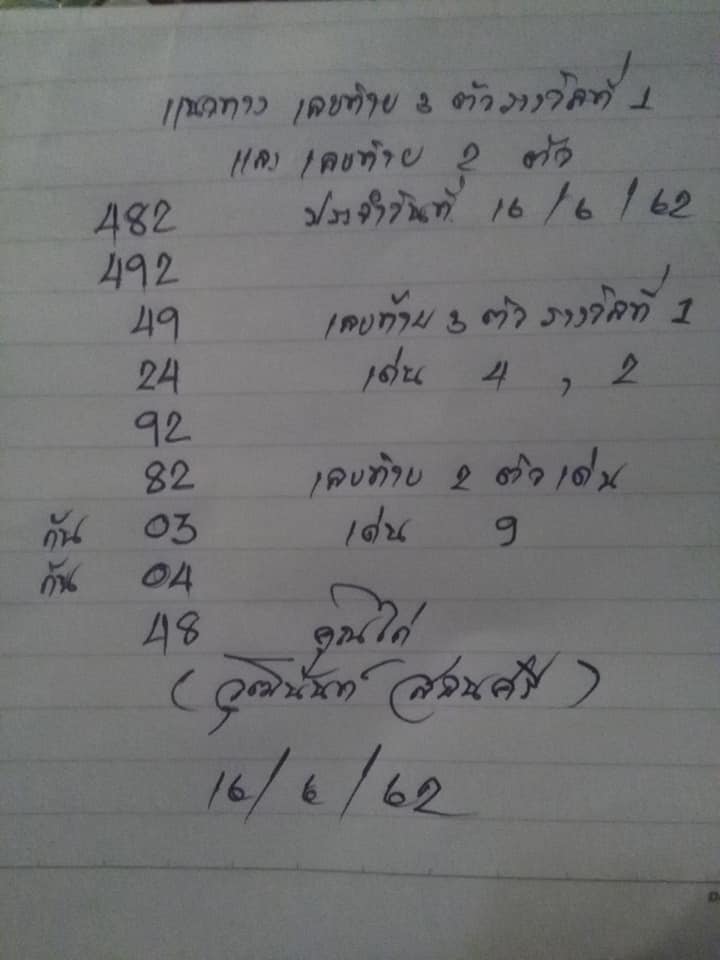 แนวทาง เลขท้าย 3 ตัวรางวัลที่ 1
และ เลขท้าย 2 ตัว
482 ประจำวันที่ 16/6/62
492
49 เลขท้าย 3 ตัว รางวัลที่ 1
24 เด่น 4 , 2
92
82 เลขท้าย 2 ตัว เด่น
กัน 03 เด่น 9
กัน 04
48
(วุฒินันท์ สอนศรี)
16/6/62